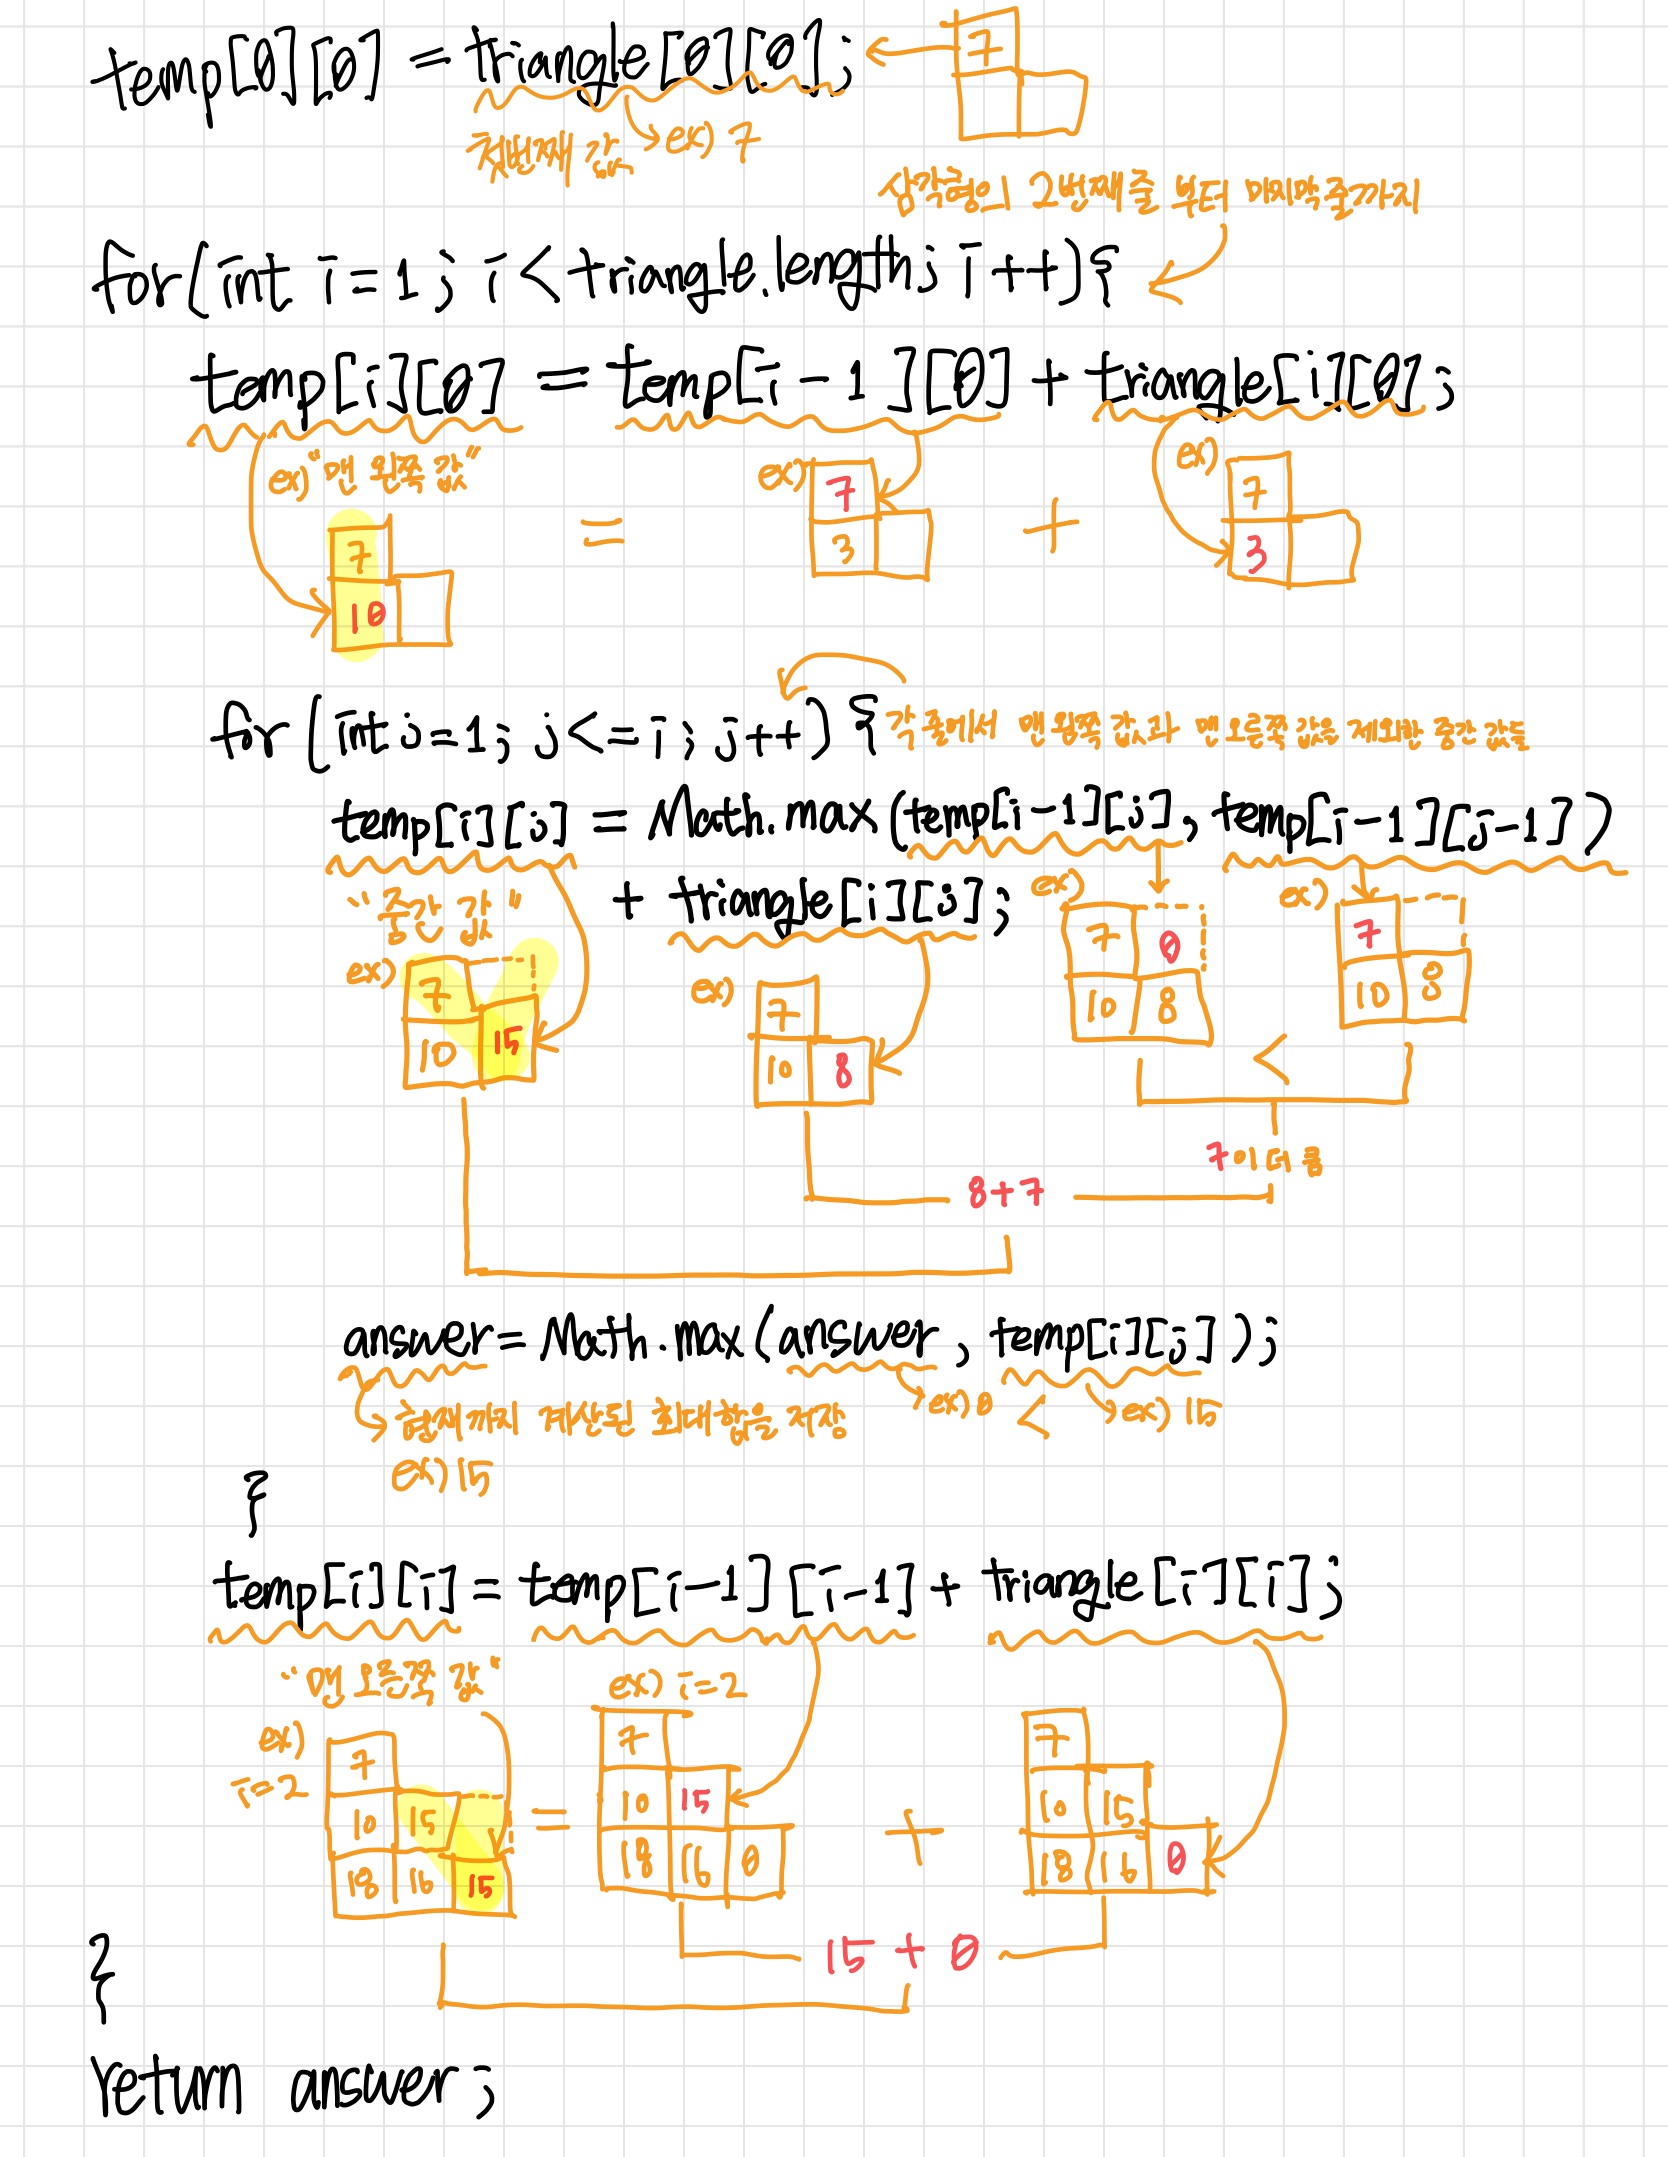 temp[0][0] = triangle[0][0];
7
첫번째 값 → ex) 7
삼각형의 2번째 줄 부터 마지막 줄까지
for(int i=1; i<triangle.length; i++){
temp[i][0] = temp[i-1][0] + triangle[i][0];
ex) "맨 왼쪽 값"
7
10
=
ex)
7
3
+
ex)
7
3
for(int j=1; j<=i; j++){
각 줄에서 맨 왼쪽 값과 맨 오른쪽 값을 제외한 중간 값들
temp[i][j] = Math.max(temp[i-1][j], temp[i-1][j-1])
+ triangle[i][j];
"중간 값"
ex)
7
10 15
ex)
7
10 8
ex)
7 0
10 8
<
ex)
7
10 8
7이 더 큼
8+7
answer = Math.max(answer, temp[i][j]);
→ 현재까지 계산된 최대합을 저장
ex) 15
ex) 0 < ex) 15
}
temp[i][i] = temp[i-1][i-1] + triangle[i][i];
"맨 오른쪽 값"
ex)
i=2
7
10 15
18 16 15
=
ex) i=2
7
10 15
18 16 0
+
7
10 15
18 16 0
15 + 0
}
return answer;